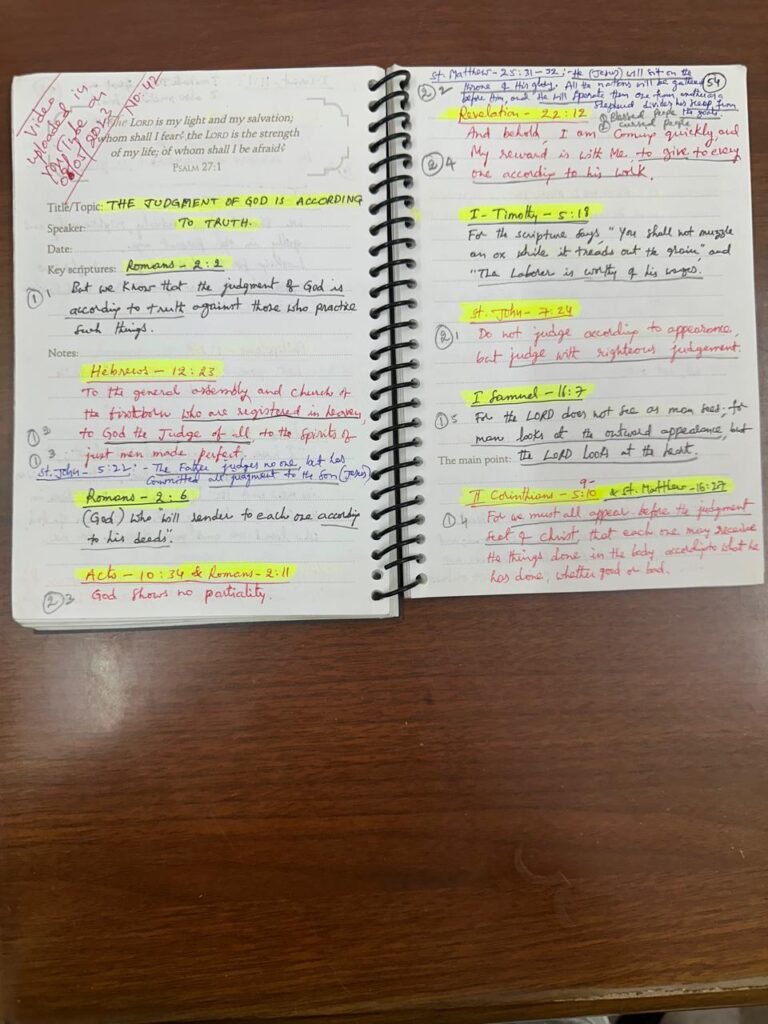 Video
uploaded in
YouTube on
No: 42
The LORD is my light and my salvation;
whom shall I fear? the LORD is the strength
of my life; of whom shall I be afraid?
PSALM 27:1
Title/Topic: THE JUDGMENT OF GOD IS ACCORDING
Speaker: TO TRUTH.
Date:
Key scriptures: Romans - 2:2
① 1 But we know that the judgment of God is
according to truth against those who practice
such things.
Notes:
Hebrews - 12:23
To the general assembly and church of
the firstborn who are registered in heaven,
① 2 to God the Judge of all, to the spirits of
① 3 just men made perfect,
St. John - 5:22 :- The Father judges no one, but has
committed all judgment to the Son (Jesus)
Romans - 2:6
(God) who "will render to each one according
to his deeds".
Acts - 10:34 & Romans - 2:11
② 3 God shows no partiality.
54
St. Matthew - 25:31-32 :- He (Jesus) will sit on the
② 2 throne of His glory. All the nations will be gathered
before Him, and He will separate them one from another, as a
shepherd divides his sheep from
the goats.
Revelation - 22:12
① Blessed people
② cursed people
And behold, I am coming quickly, and
② 4 My reward is with Me, to give to every
one according to his work.
I - Timothy - 5:18
For the scripture says, "You shall not muzzle
an ox while it treads out the grain", and
"The Laborer is worthy of his wages.
St. John - 7:24
② 1 Do not judge according to appearance,
but judge with righteous judgement.
I Samuel - 16:7
① 5 For the LORD does not see as man sees; for
man looks at the outward appearance, but
The main point: the LORD looks at the heart.
II Corinthians - 5:9-10 & St. Matthew - 16:27
① 4 For we must all appear before the judgment
seat of Christ, that each one may receive
the things done in the body, according to what he
has done, whether good or bad.